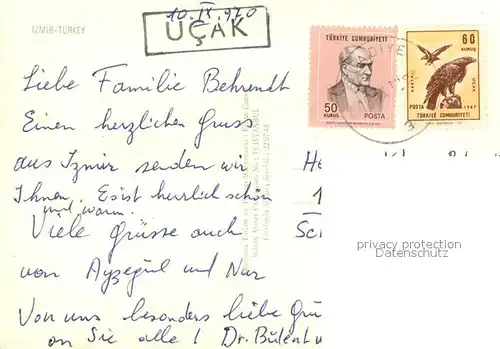 10.IX.970
IZMIR-TURKEY
UÇAK
TÜRKİYE CUMHURİYETİ
50
KURUŞ
POSTA
60
KURUŞ
KARTAL
UÇAK
POSTA 1967
TÜRKİYE CUMHURİYETİ
Liebe Familie Behrendt
Einen herzlichen Gruss
aus Izmir senden wir
Ihnen. Es ist herrlich schön
und warm.
Viele Grüsse auch
von Ayşegül und Nur
Von uns besonders liebe Grü
an Sie alle! Dr. Bülent u
privacy protection
Datenschutz